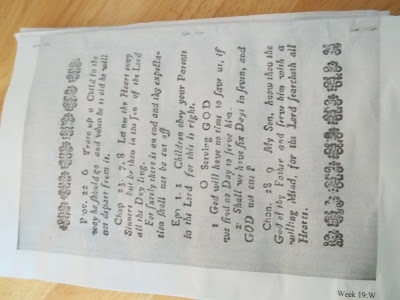 Pov. 22 6 Train up a Child in the
way he should go and when he is old he will
not depart from it.
Chap 23. 7. 8 Let not thy Heart envy
Sinners but be thou in the fear of the Lord
all the Day long.
For surely there is an end and thy expecta-
tion shall not be cut off
Eph 1. 1 Children obey your Parents
in the Lord for this is right.
O Serving GOD
1 God will have no time to save us, if
we find no Day to serve him.
2. Shall we have six Days in seven, and
GOD not one?
Chon. 28 9 My Son, know thou the
God of thy Father and serve him with a
willing Mind, for the Lord searcheth all
Hearts.
Week 19:W